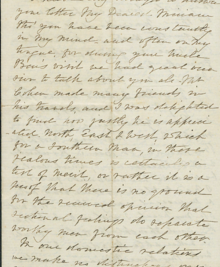 your letter My Dearest Miriam
that you have been constantly
in my mind and often on my
tongue, for during your Uncle
Ben's visit we had great
to talk about you all. Mr
Cohen made many friends in
his travels, and I was delighted
to find how justly he is appreci-
ated North East & West, which
for a Southern Man, in these
jealous times is
test of merit, or rather it is a
proof that there is no ground
for the received opinion that
national feelings do separate
worthy men from each other.
In our domestic relations
we make no distinctions